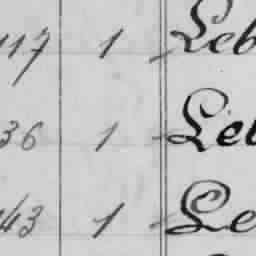 117 1 Leb
36 1 Leb
43 1 Le